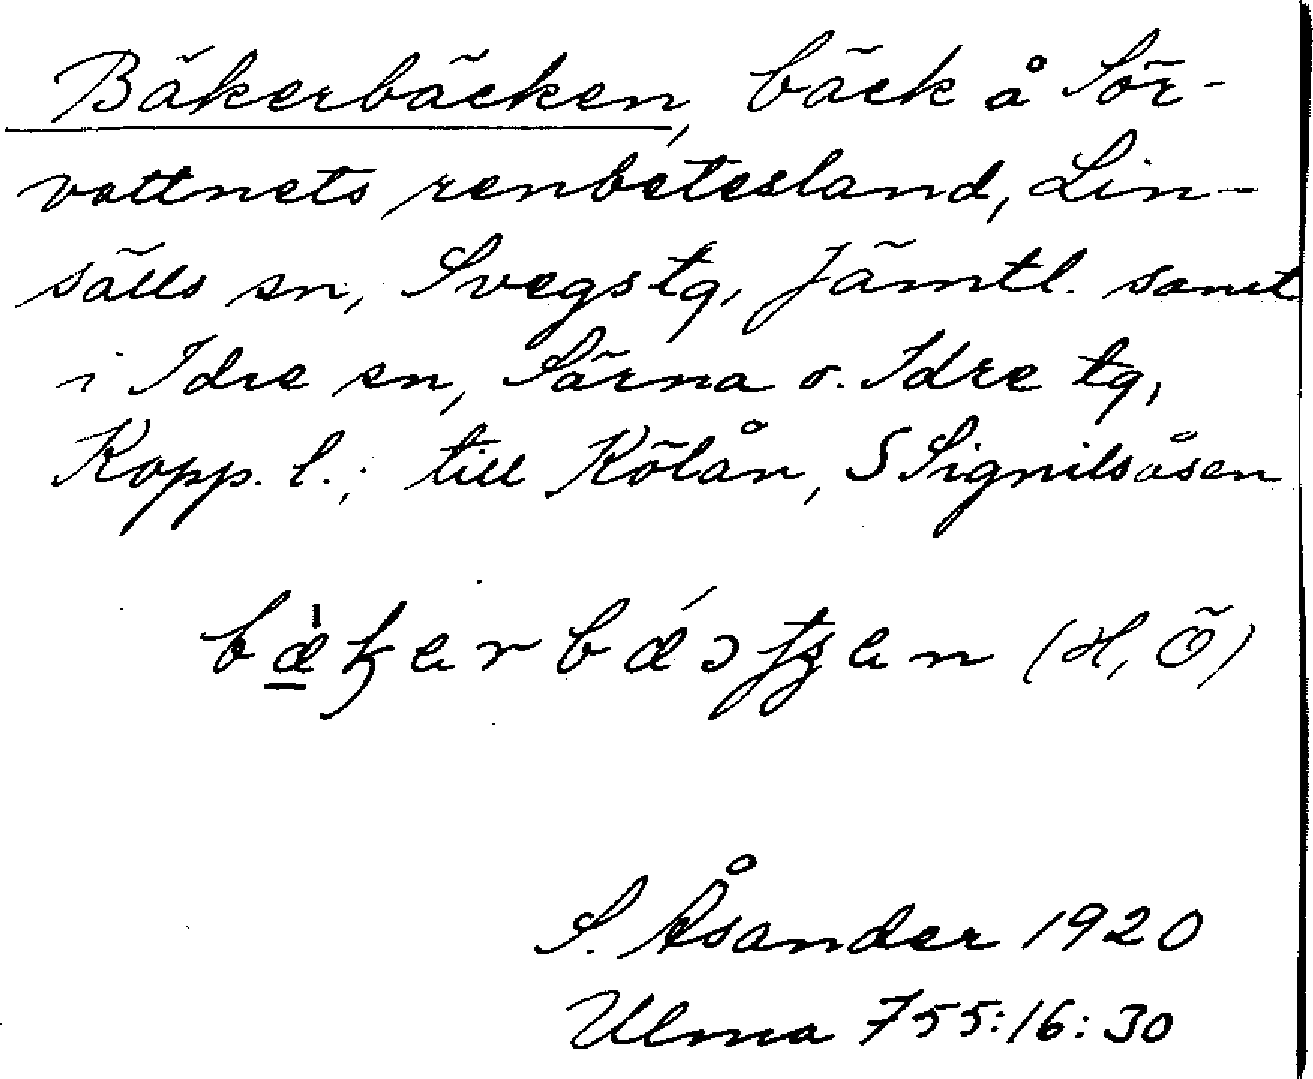 Bäkerbäcken, bäck å Sör-
vattnets renbetesland, Lin-
sälls sn, Svegs tg, Jämtl. samt
i Idre sn, Särna o. Idre tg,
Kopp. l.; till Kölån, S Signilsåsen
(H, Ö)
S. Åsander 1920
Ulma 755:16:30